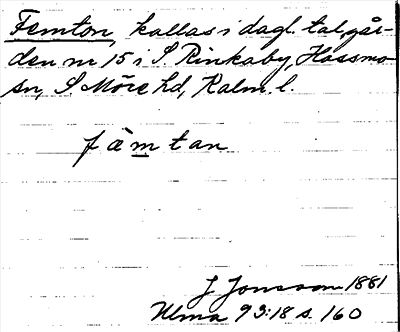 Femton, kallas i dagl. tal, går-
den nr 15 i S. Rinkaby, Hossmo
sn, S Möre hd, Kalm. l.
fàmtan
J Jonsson 1881
Ulma 93:18 s. 160